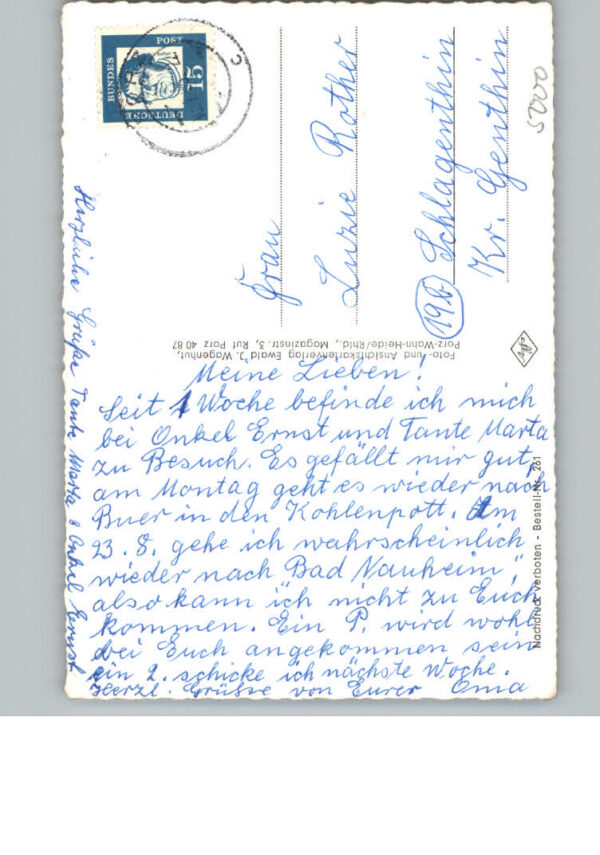 Meine Lieben!
Seit 1 Woche befinde ich mich
bei Onkel Ernst und Tante Marta
zu Besuch. Es gefällt mir gut,
am Montag geht es wieder nach
Buer in den Kohlenpott. Am
23.8. gehe ich wahrscheinlich
wieder nach Bad Nauheim,
also kann ich nicht zu Euch
kommen. Ein P. wird wohl
bei Euch angekommen sein
ein 2. schicke ich nächste Woche.
Herzl. Grüsse von Eurer Oma
Herzliche Grüße Tante Marta & Onkel Ernst
Frau
Luzie Rother
(19b) Schlagenthin
Kr. Genthin
5000
DEUTSCHE
BUNDES
POST
15
Foto- und Ansichtskartenverlag Ewald J. Wagenhut,
Porz-Wahn-Heide/Rhld., Magazinstr. 3, Ruf Porz 40 87
Nachdruck verboten - Bestell-Nr. 261